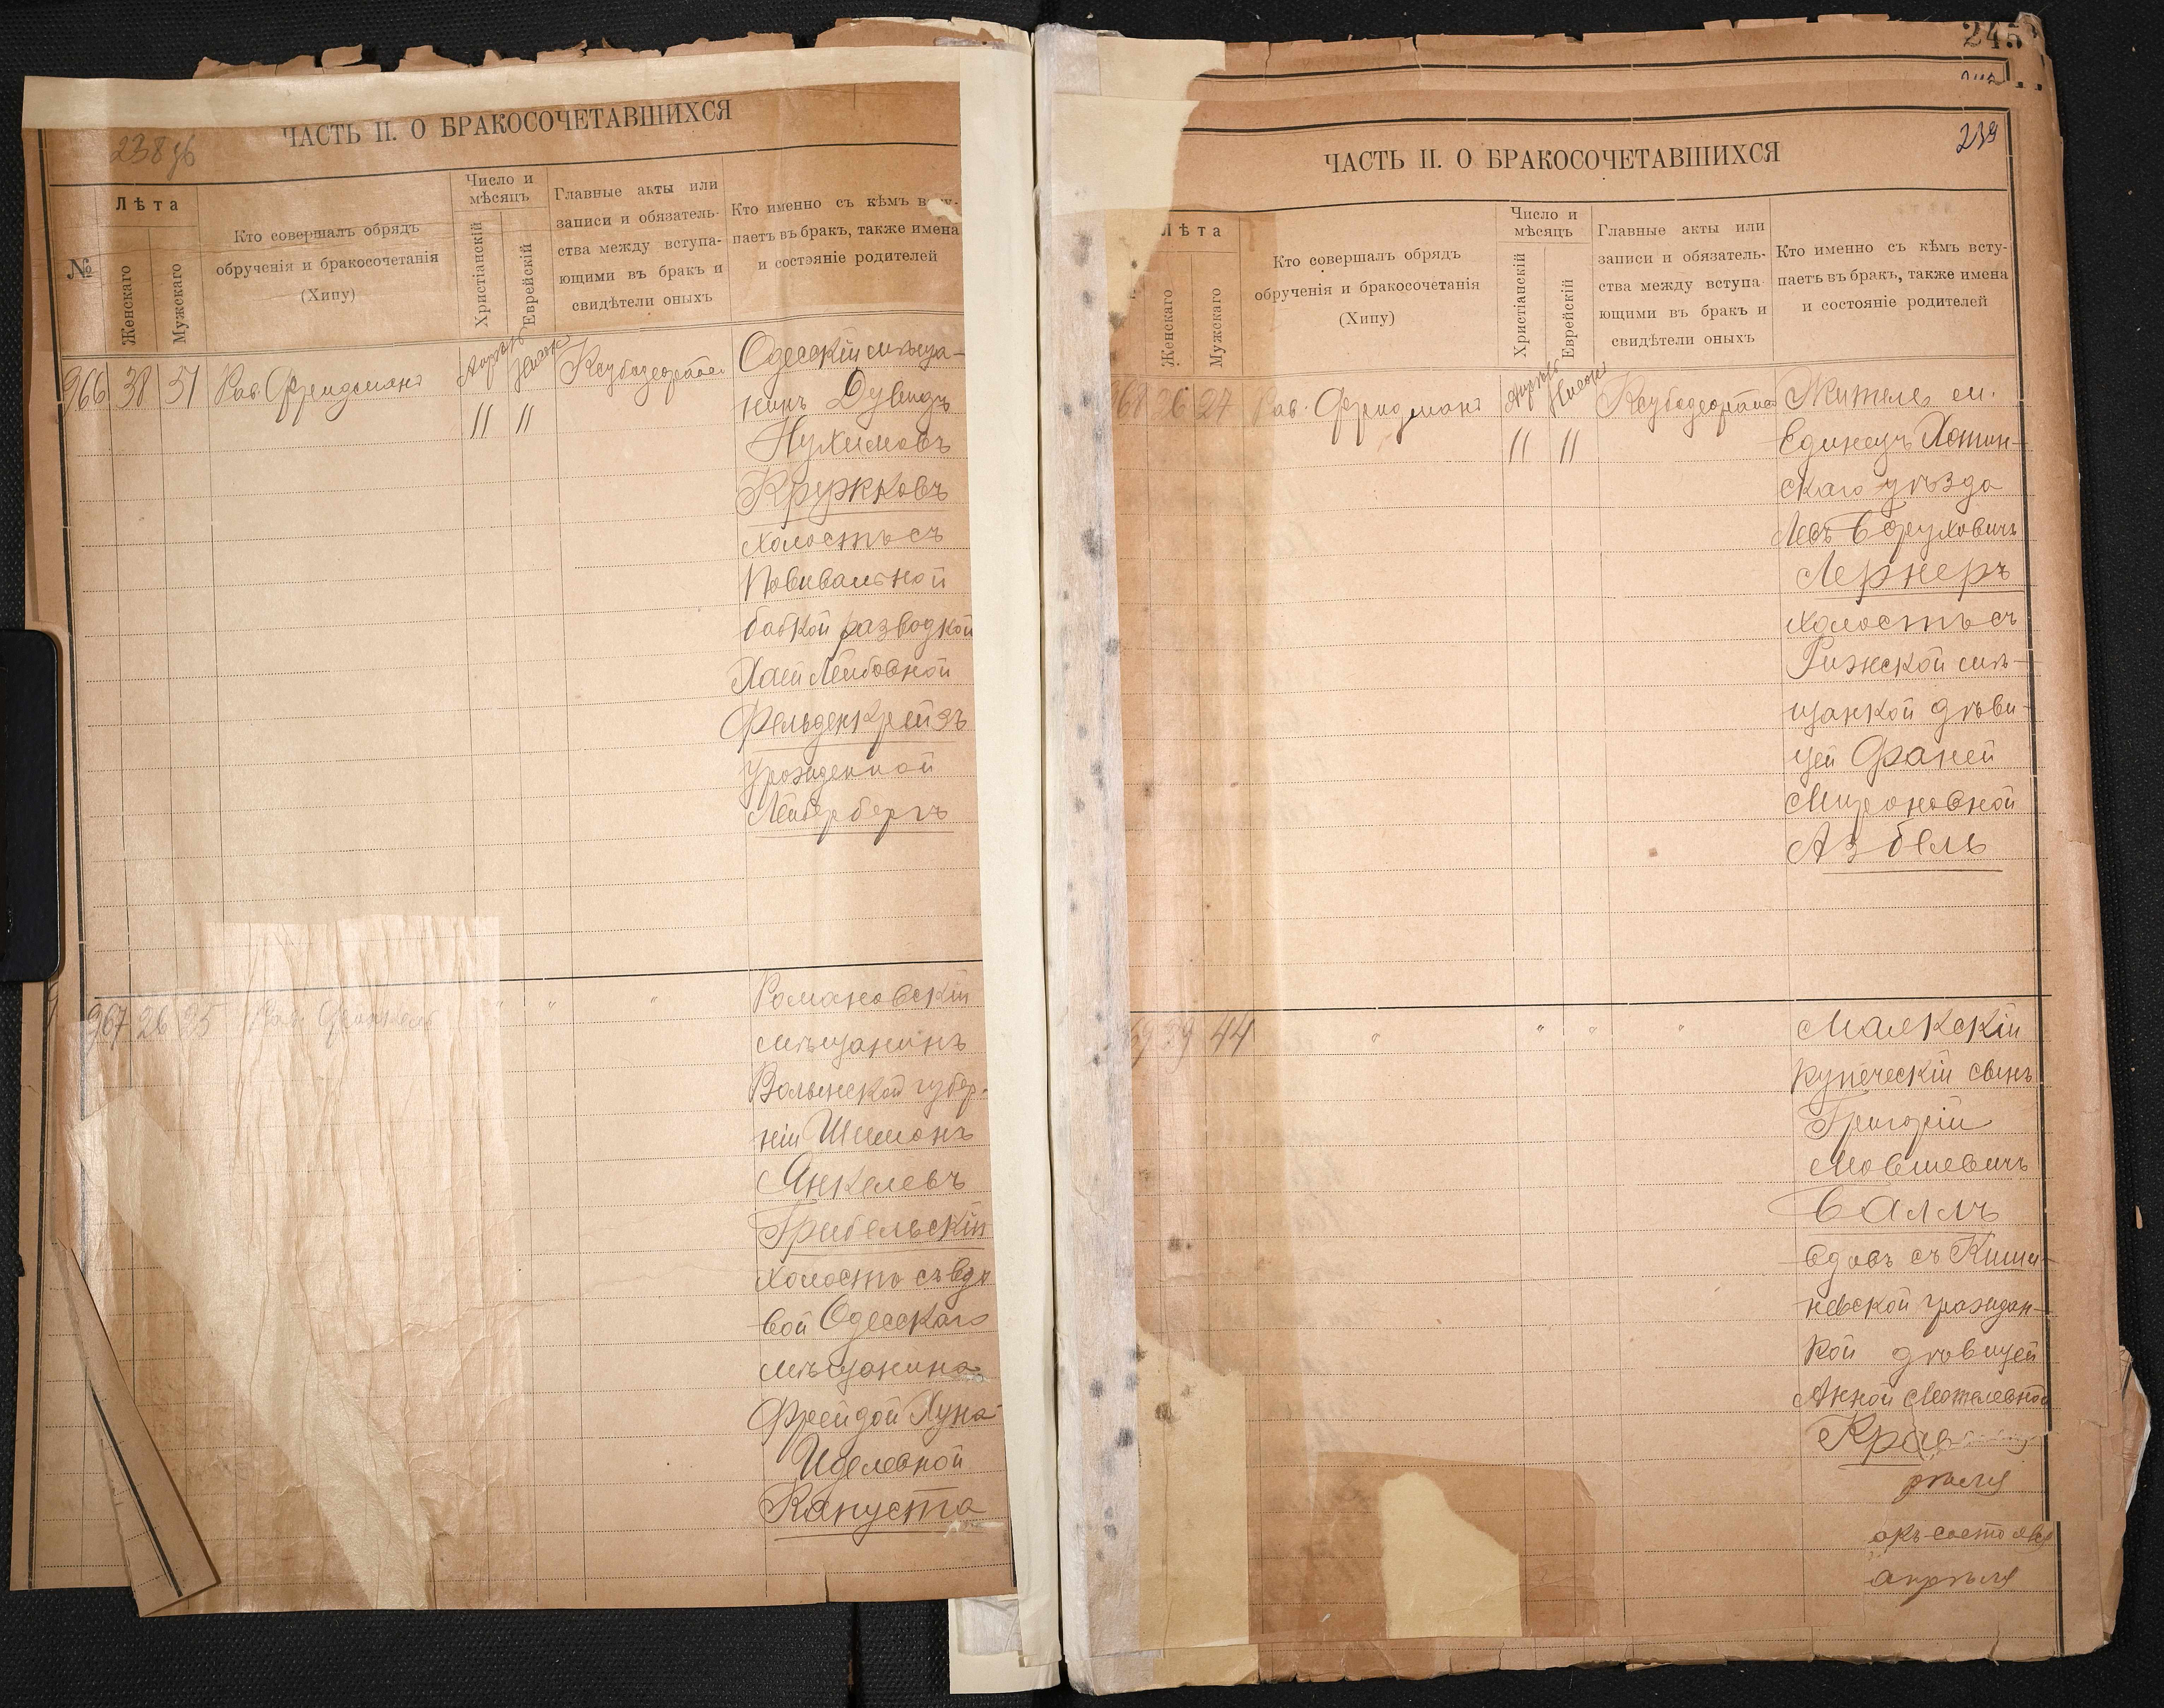 238 об
ЧАСТЬ II. О БРАКОСОЧЕТАВШИХСЯ
№
Лѣта
Женскаго
Мужскаго
Кто совершалъ обрядъ
обрученія и бракосочетанія
(Хипу)
Число и
мѣсяцъ
Христіанскій
Еврейскій
Главные акты или
записи и обязатель-
ства между вступа-
ющими въ бракъ и
свидѣтели оныхъ
Кто именно съ кѣмъ всту-
паетъ въ бракъ, также имена
и состояніе родителей
966 38 51 Рав. Фридманъ
Апрѣль Нисонъ
11 11
Одесскій мѣща-
нинъ Дувидъ
Нухимовъ
Кружковъ
холостъ съ
Повивальной
бабкой разводкой
Хаей Лейбовной
Фельденкрейзъ
урожденной
Лейдербергъ
967 26 25 Рав.
" " "
Романовскій
мѣщанинъ
Волынской губер-
ніи Шимонъ
Янкелевъ
Грибельскій
холостъ съ вдо
вой Одесскаго
мѣщанина
Фрейдой Хуна-
Иделевной
Капуста
245
239
ЧАСТЬ II. О БРАКОСОЧЕТАВШИХСЯ
Лѣта
Женскаго
Мужскаго
Кто совершалъ обрядъ
обрученія и бракосочетанія
(Хипу)
Число и
мѣсяцъ
Христіанскій
Еврейскій
Главные акты или
записи и обязатель-
ства между вступа-
ющими въ бракъ и
свидѣтели оныхъ
Кто именно съ кѣмъ всту-
паетъ въ бракъ, также имена
и состояніе родителей
968 26 27 Рав. Фридманъ
Апрѣль Нисонъ
11 11
Житель м.
Единецъ Хотин-
скаго уѣзда
Левъ Боруховичъ
Лернеръ
холостъ съ
Рижской мѣ-
щанкой дѣви-
цей Фаней
Мироновной
Азбель
69 39 44 " " " "
Маякскій
купеческій сынъ
Григорій
Мовшевичъ
Баллъ
вдовъ съ Киши-
невской граждан-
кой дѣвицей
Анной Мотелевной
рѣля
акъ состоялся
апрѣля